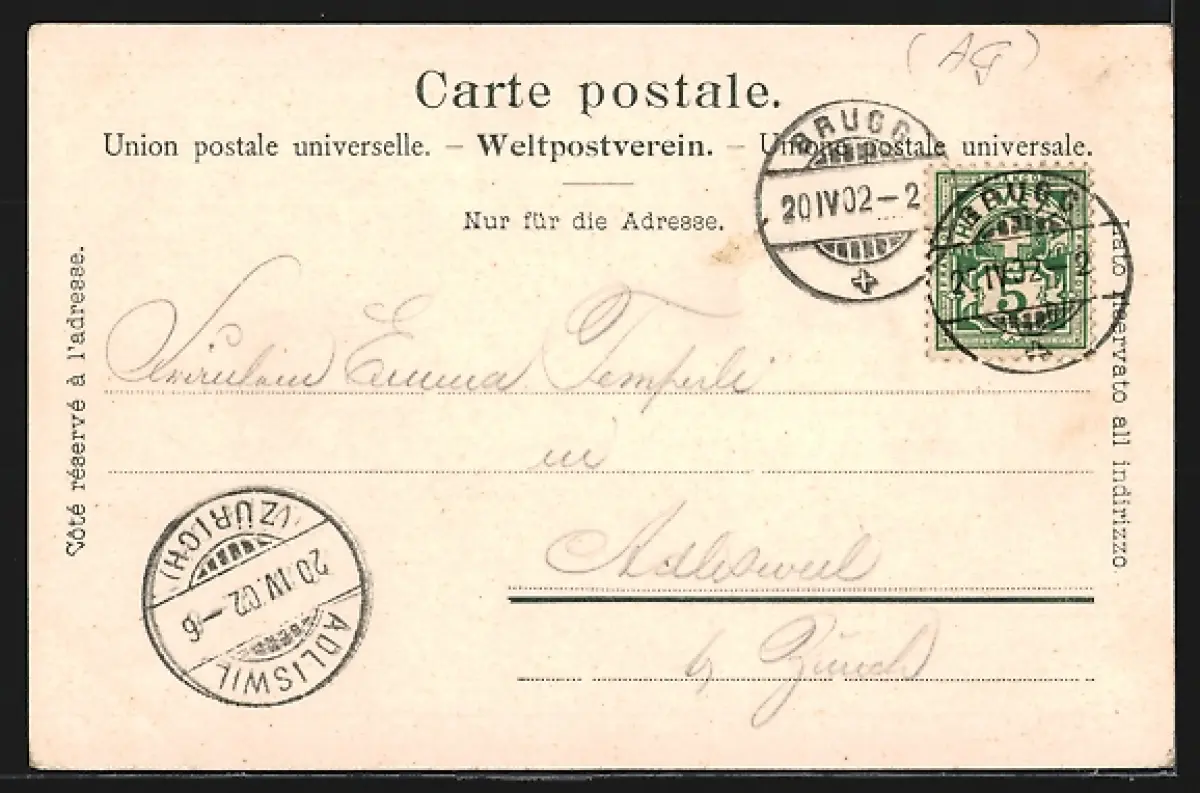 (AG)
Carte postale.
Union postale universelle. – Weltpostverein. – Unione postale universale.
Nur für die Adresse.
BRUGG
20 IV 02 – 2
BRUGG
IV 02 – 2
5
Côté réservé à l'adresse.
Lato riservato all indirizzo.
Fräulein Emma Temperli
in
Adlisweil
b/ Zürich
ADLISWIL
20. IV. 02. – 6
(ZÜRICH)